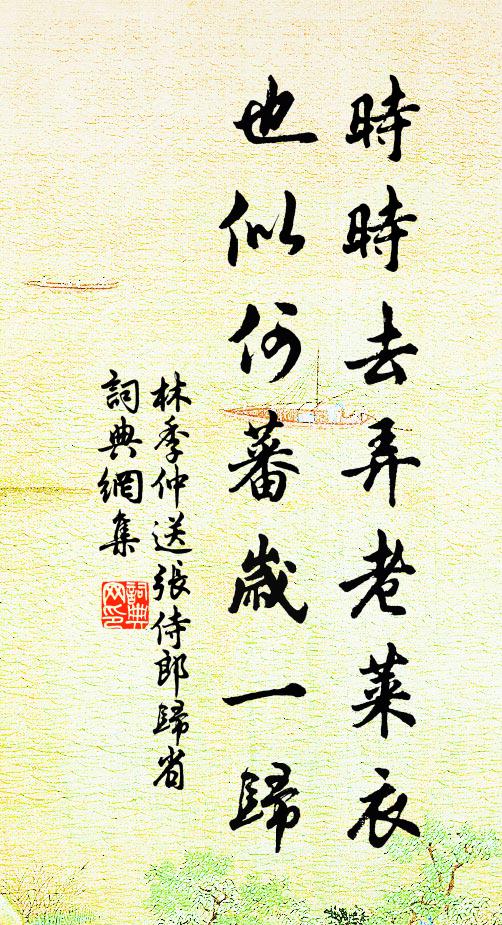 時時去弄老萊衣
也似何蕃歲一歸
林季仲送張侍郎歸省
詞典網集
詞典
网印